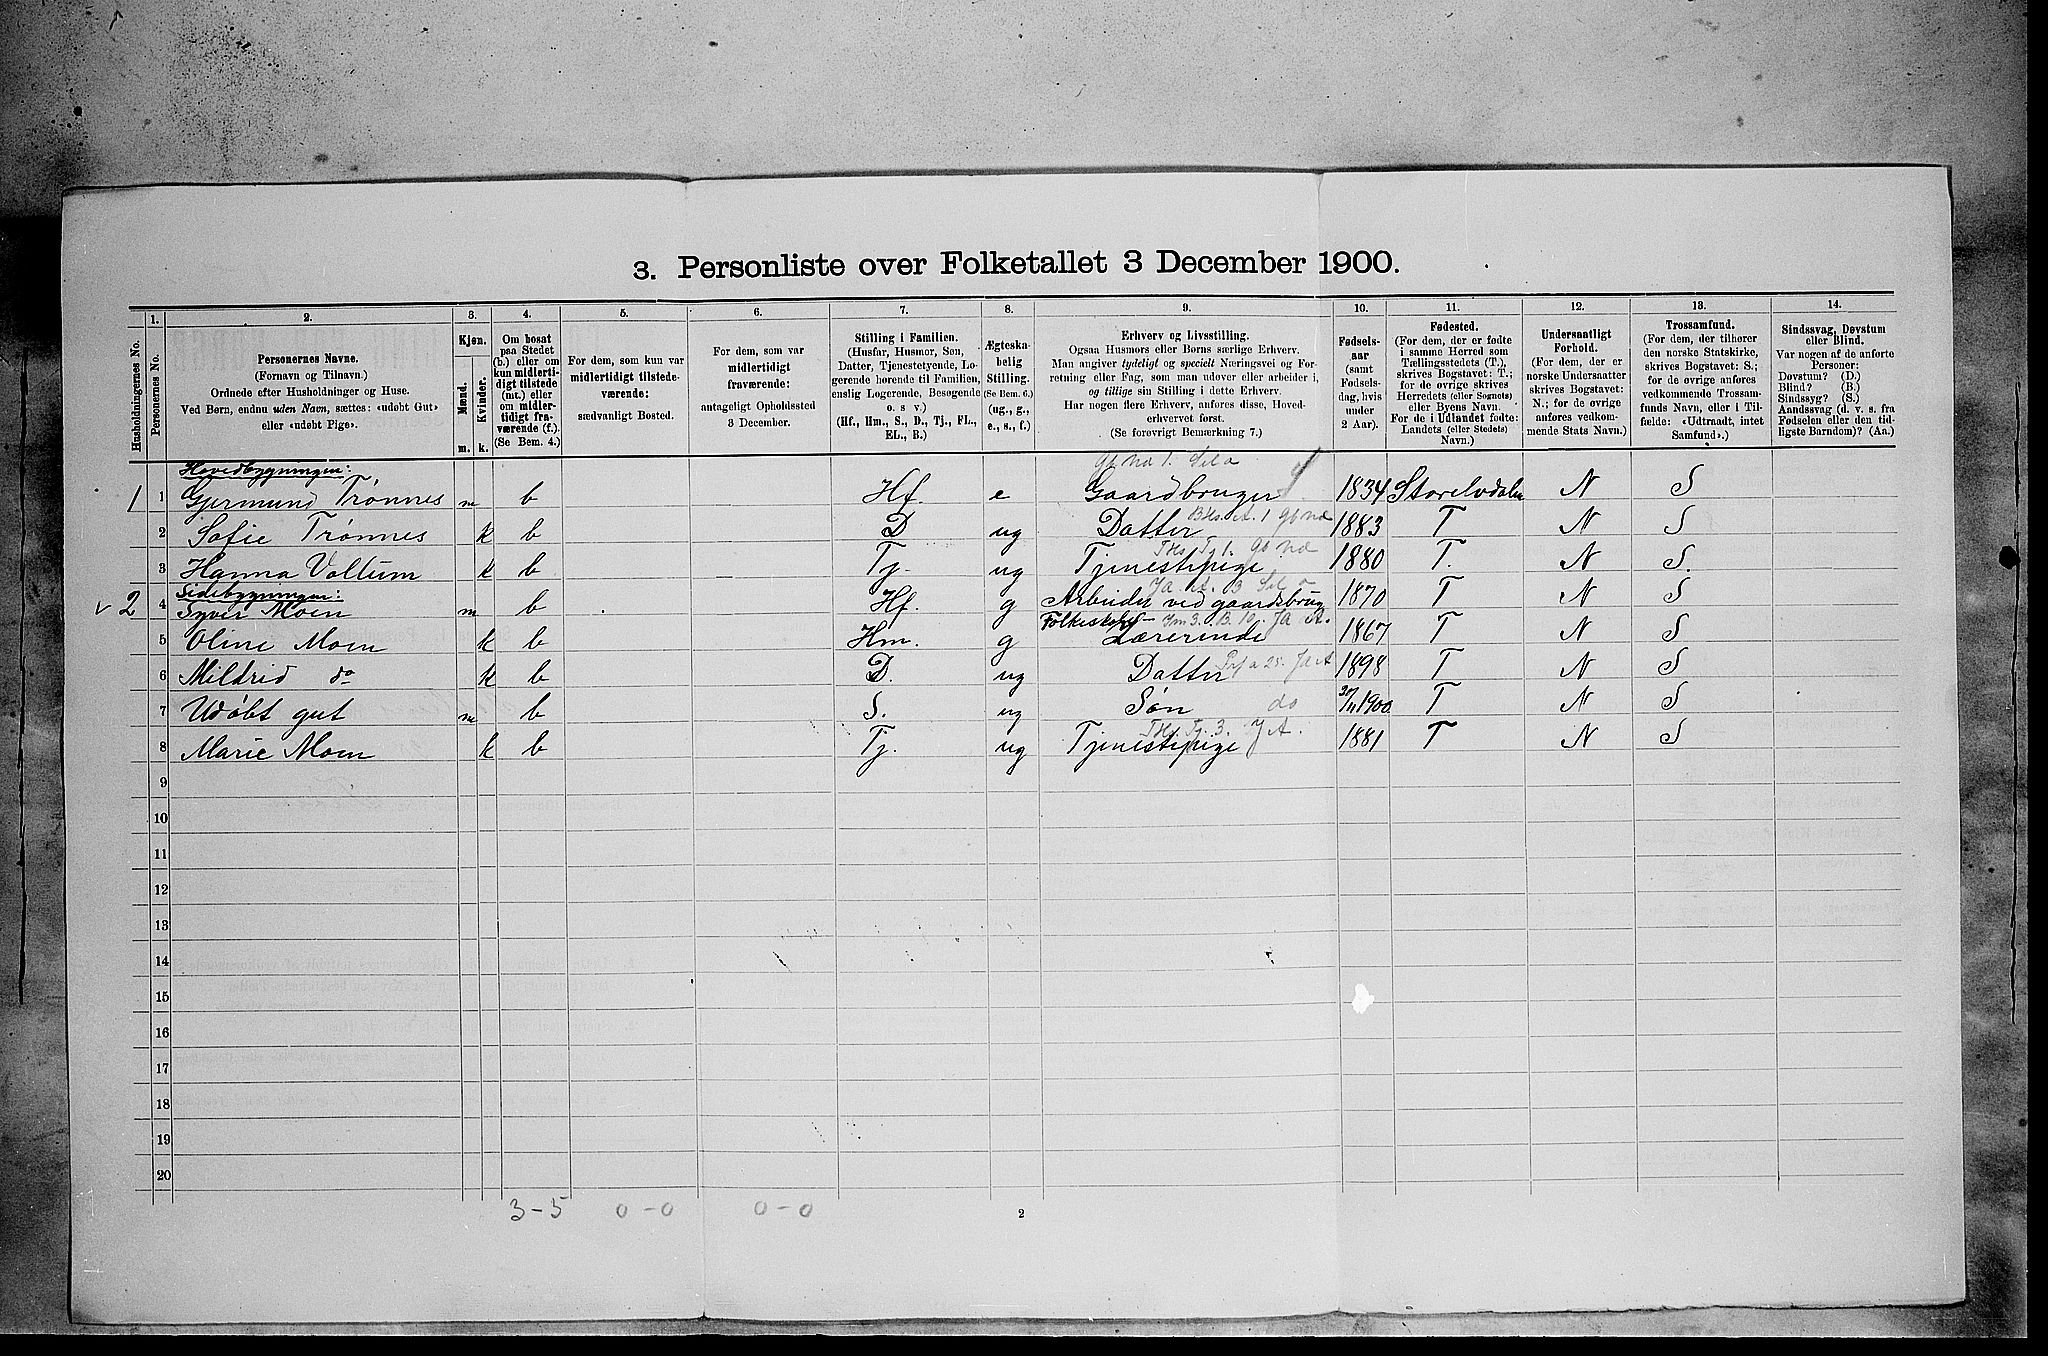 3. Personliste over Folketallet 3 December 1900.
1. 2. 3. 4. 5. 6. 7. 8. 9. 10. 11. 12. 13. 14.
Husholdningernes No.
Personernes No.
Personernes Navne.
(Fornavn og Tilnavn.)
Ordnede efter Husholdninger og Huse.
Ved Børn, endnu uden Navn, sættes: «udøbt Gut»
eller «udøbt Pige».
Kjøn.
Mænd.
Kvinder.
m. k.
Om bosat
paa Stedet
(b.) eller om
kun midlerti-
digt tilstede
(mt.) eller
om midler-
tidigt fra-
værende (f.).
(Se Bem. 4.)
For dem, som kun var
midlertidigt tilstede-
værende:
sædvanligt Bosted.
For dem, som var
midlertidigt
fraværende:
antageligt Opholdssted
3 December.
Stilling i Familien.
(Husfar, Husmor, Søn,
Datter, Tjenestetyende, Lo-
gerende hørende til Familien,
enslig Logerende, Besøgende
o. s. v.)
(Hf., Hm., S., D., Tj., FL.,
EL., B.)
Ægteska-
belig
Stilling.
(Se Bem. 6.)
(ug., g.,
e., s., f.)
Erhverv og Livsstilling.
Ogsaa Husmors eller Børns særlige Erhverv.
Man angiver tydeligt og specielt Næringsvei og For-
retning eller Fag, som man udøver eller arbeider i,
og tillige sin Stilling i dette Erhverv.
Har nogen flere Erhverv, anføres disse, Hoved-
erhvervet først.
(Se forøvrigt Bemærkning 7.)
Fødsels-
aar
(samt
Fødsels-
dag, hvis
under
2 Aar).
Fødested.
(For dem, der er fødte
i samme Herred som
Tællingsstedets (T.),
skrives Bogstavet: T.;
for de øvrige skrives
Herredets (eller Sognets)
eller Byens Navn.
For de i Udlandet fødte:
Landets (eller Stedets)
Navn.)
Undersaatligt
Forhold.
(For dem, der er
norske Undersaatter
skrives Bogstavet:
N.; for de øvrige
anføres vedkom-
mende Stats Navn.)
Trossamfund.
(For dem, der tilhører
den norske Statskirke,
skrives Bogstavet: S.;
for de øvrige anføres
vedkommende Trossam-
funds Navn, eller i Til-
fælde: «Udtraadt, intet
Samfund».)
Sindssvag, Døvstum
eller Blind.
Var nogen af de anførte
Personer:
Døvstum? (D.)
Blind? (B.)
Sindssyg? (S.)
Aandssvag (d. v. s. fra
Fødselen eller den tid-
ligste Barndom)? (Aa.)
Hovedbygningen:
1 1 Gjermund Trønnes m b Hf. e Gaardbruger 1834 Storelvdalen N S
2 Sofie Trønnes k b D ug Datter 1883 T N S
3 Hanna Voltum k b Tj. ug Tjenestepige 1880 T. N S.
Sidebygningen:
v 2 4 Syver Moen m b Hf. g Arbeider ved gaardsbrug 1870 T N S
5 Oline Moen k b Hm. g Folkeskole- Lærerinde 1867 T N S
6 Mildrid do k b D. ug Datter 1898 T N S
7 Udøbt gut m b S. ug Søn do 30/11 1900 T N S
8 Marie Moen k b Tj. ug Tjenestepige 1881 T N S
9
10
11
12
13
14
15
16
17
18
19
20
3-5 0-0 0-0
2